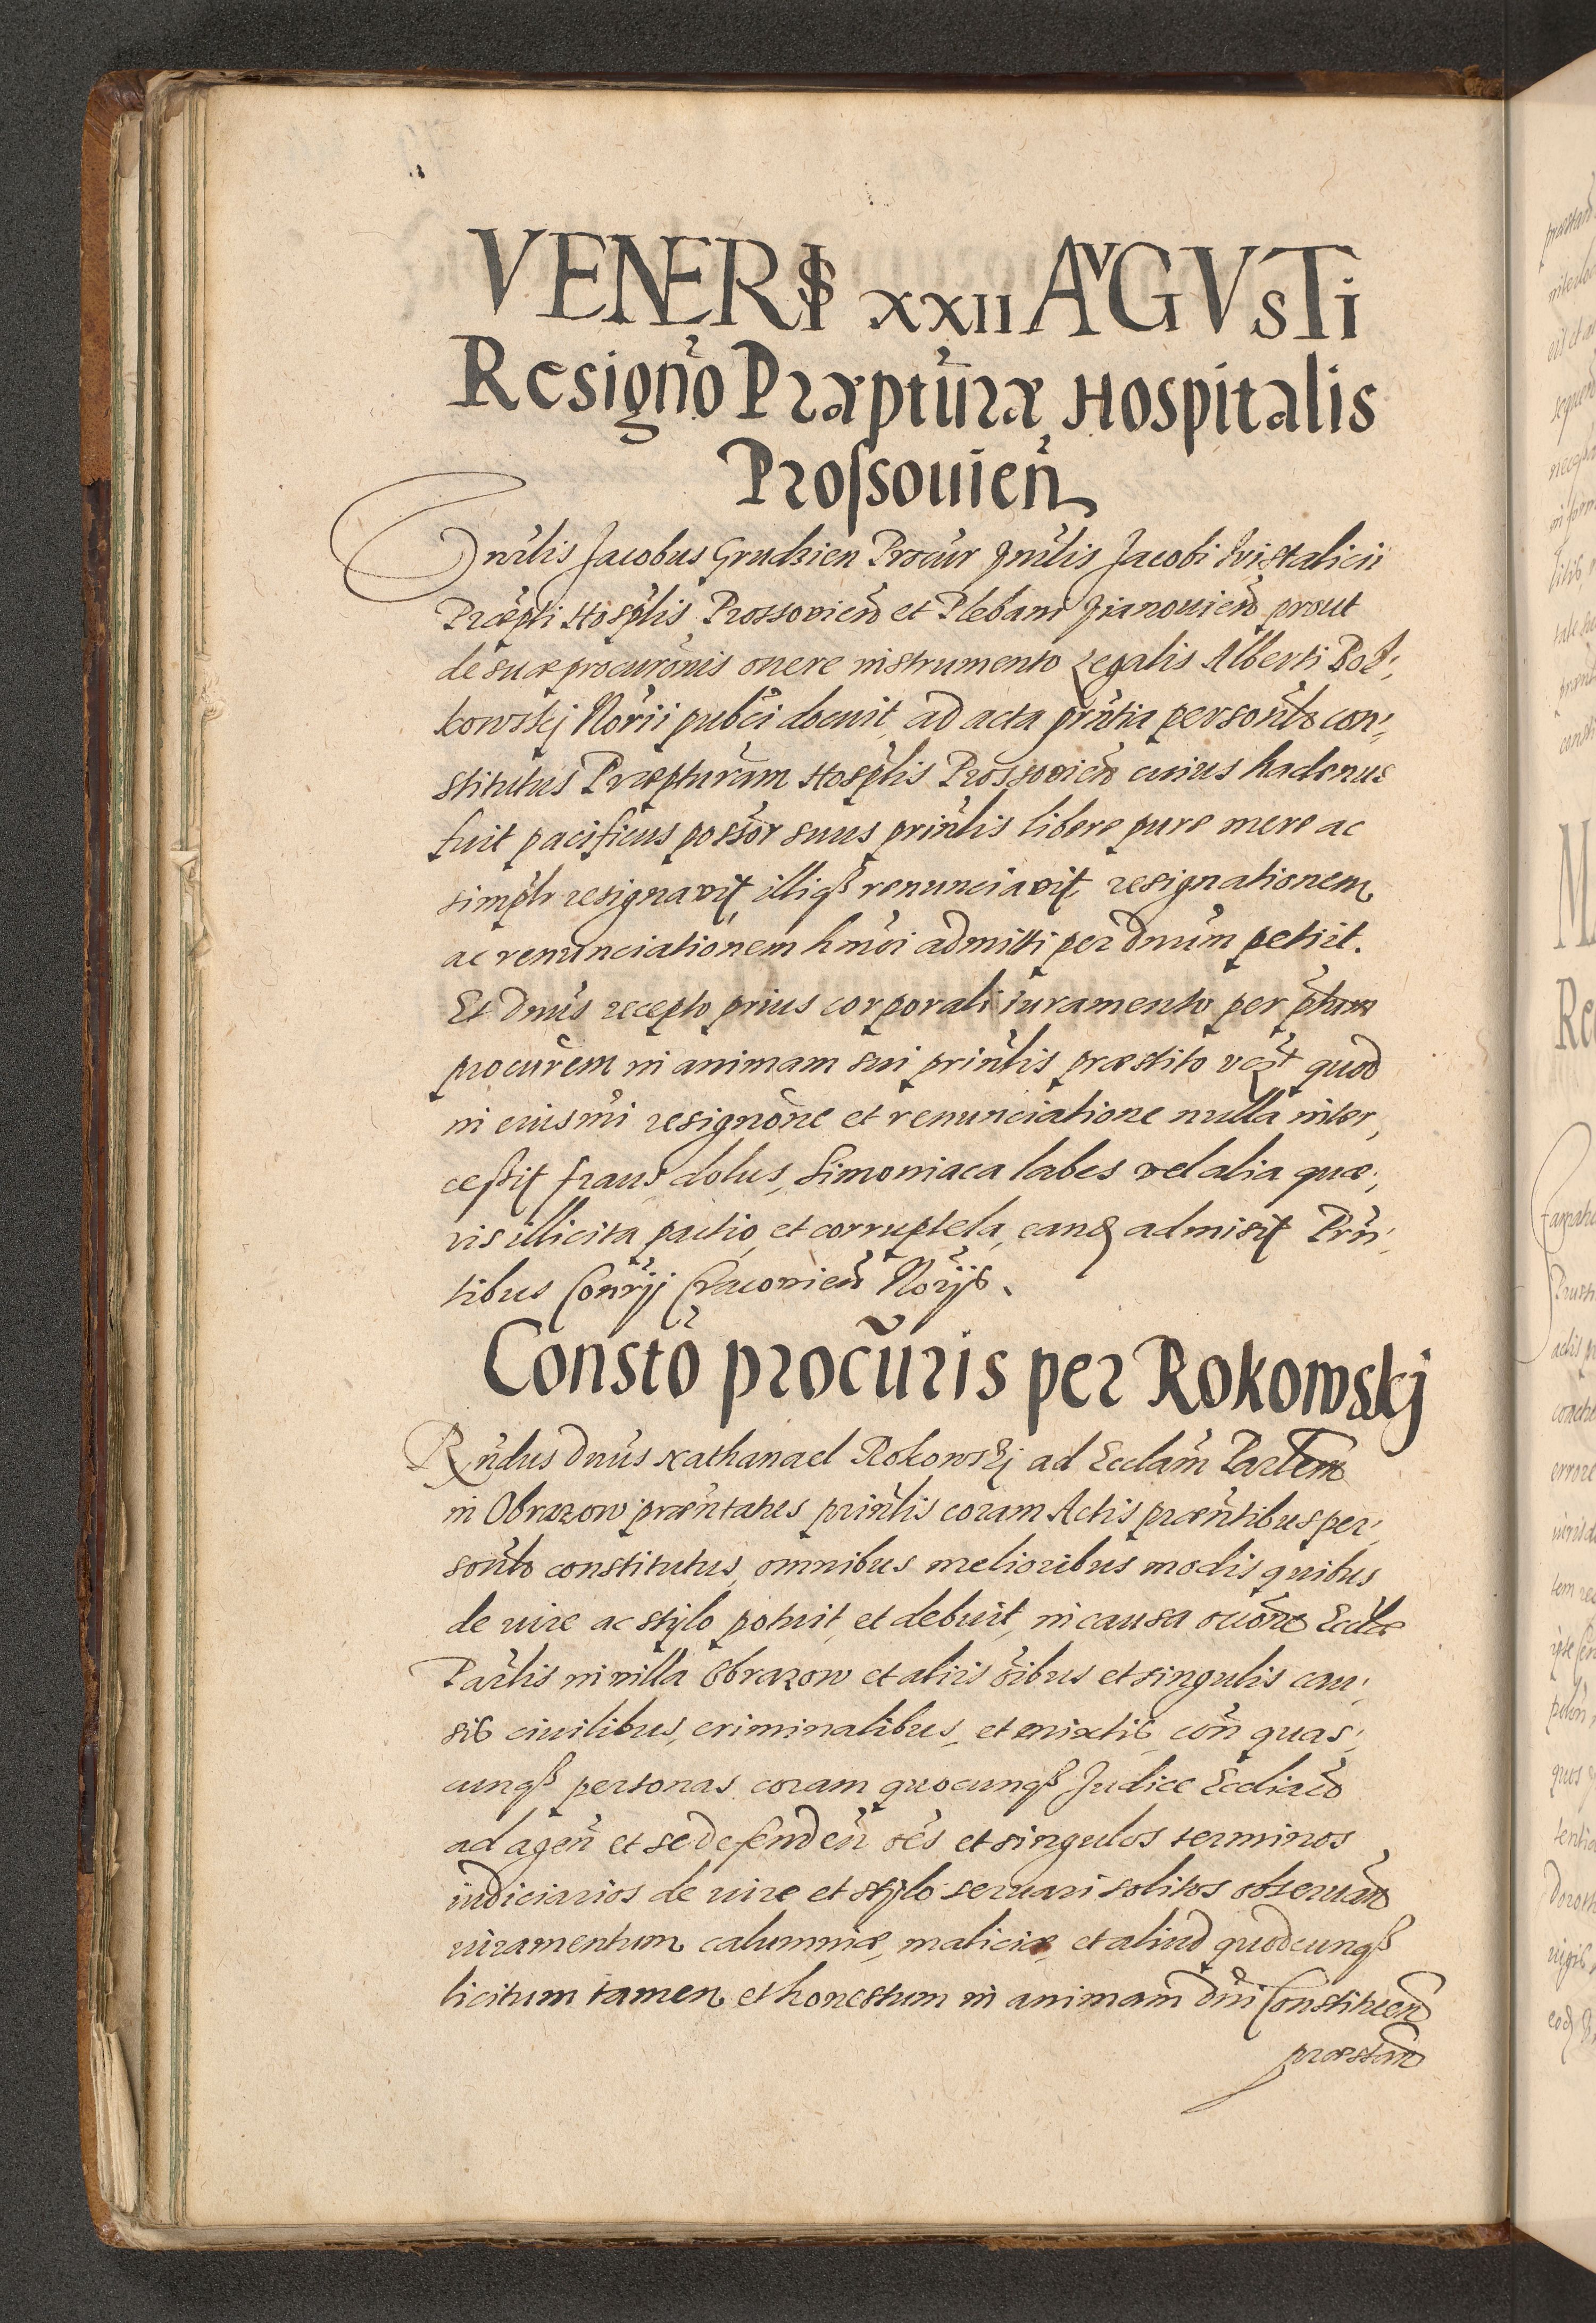 VENERIS XXII AVGVSTi
Resigño Præptũræ Hospitalis
Prossouień
Dñilis Jacobus Grudzien Procũr Gñilis Jacobi
Præpti Hosp̃lis Prossovień et Plebani prout
de suæ procurõnis onere instrumento Legalis Alberti Bot,
kowskj Norii pub̃ci docuit, ad acta p̃ñtia personl̃r con,
stitutus Præpturam Hosp̃lis Prossovień cuius hactenus
fuit pacificus possõr suus prinl̃is libere pure mere ac
simpl̃r resignavit, illiqȝ renunciavit, resignationem
ac renunciationem hm̃oi admitti per Dñum petiit.
Et Dñus recepto prius corporali iuramento per p̃tum
procurẽm in animam sui prinl̃is præstito vcz̃t quod
in eiusm̃i resignõne et renunciatione nulla inter,
cessit fraus, dolus, Simoniaca labes vel alia quæ,
vis illicita pactio, et corruptela, eanđ admisit Prñ,
tibus Consr̃ij Cracovień Norijs.
Constõ procũris per Rokowskj
Rñdus Dñus Nathanael Rokowskj ad Eccl̃am Parl̃em
in Obrazow præñtatus prinl̃is coram Actis præñtibus per,
sonl̃r constitutus, omnibus melioribus modis quibus
de iure ac stylo potuit, et debuit, in causa Eccl̃æ
Parl̃is in villa Obrazow et aliis õibus et singulis cau,
sis ciuilibus, criminalibus, et mixtis, coñ quas,
cunqȝ personas coram quocunqȝ Judice Ecclia͠o
ad ageñ et se defendeñ oẽs et singulos terminos
iudiciarios de iure et stylo seruari solitos obseruañ
iuramentum calumniæ, maliciæ, et aliud quodcunqȝ
licitum tamen et honestum in animam Dñi Constitueñ
præstañ